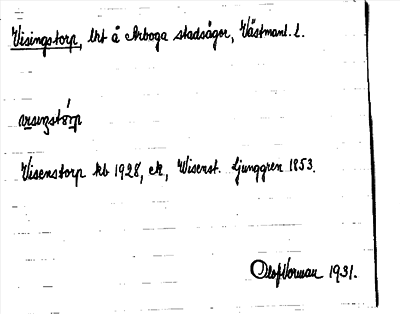 Visingstorp, lht å Arboga stadsägor, Västmanl. l.
vɪsɪŋstórp
Visenstorp kb 1928, ek, Wisenst. Ljunggren 1853.
Olof Norman 1931.